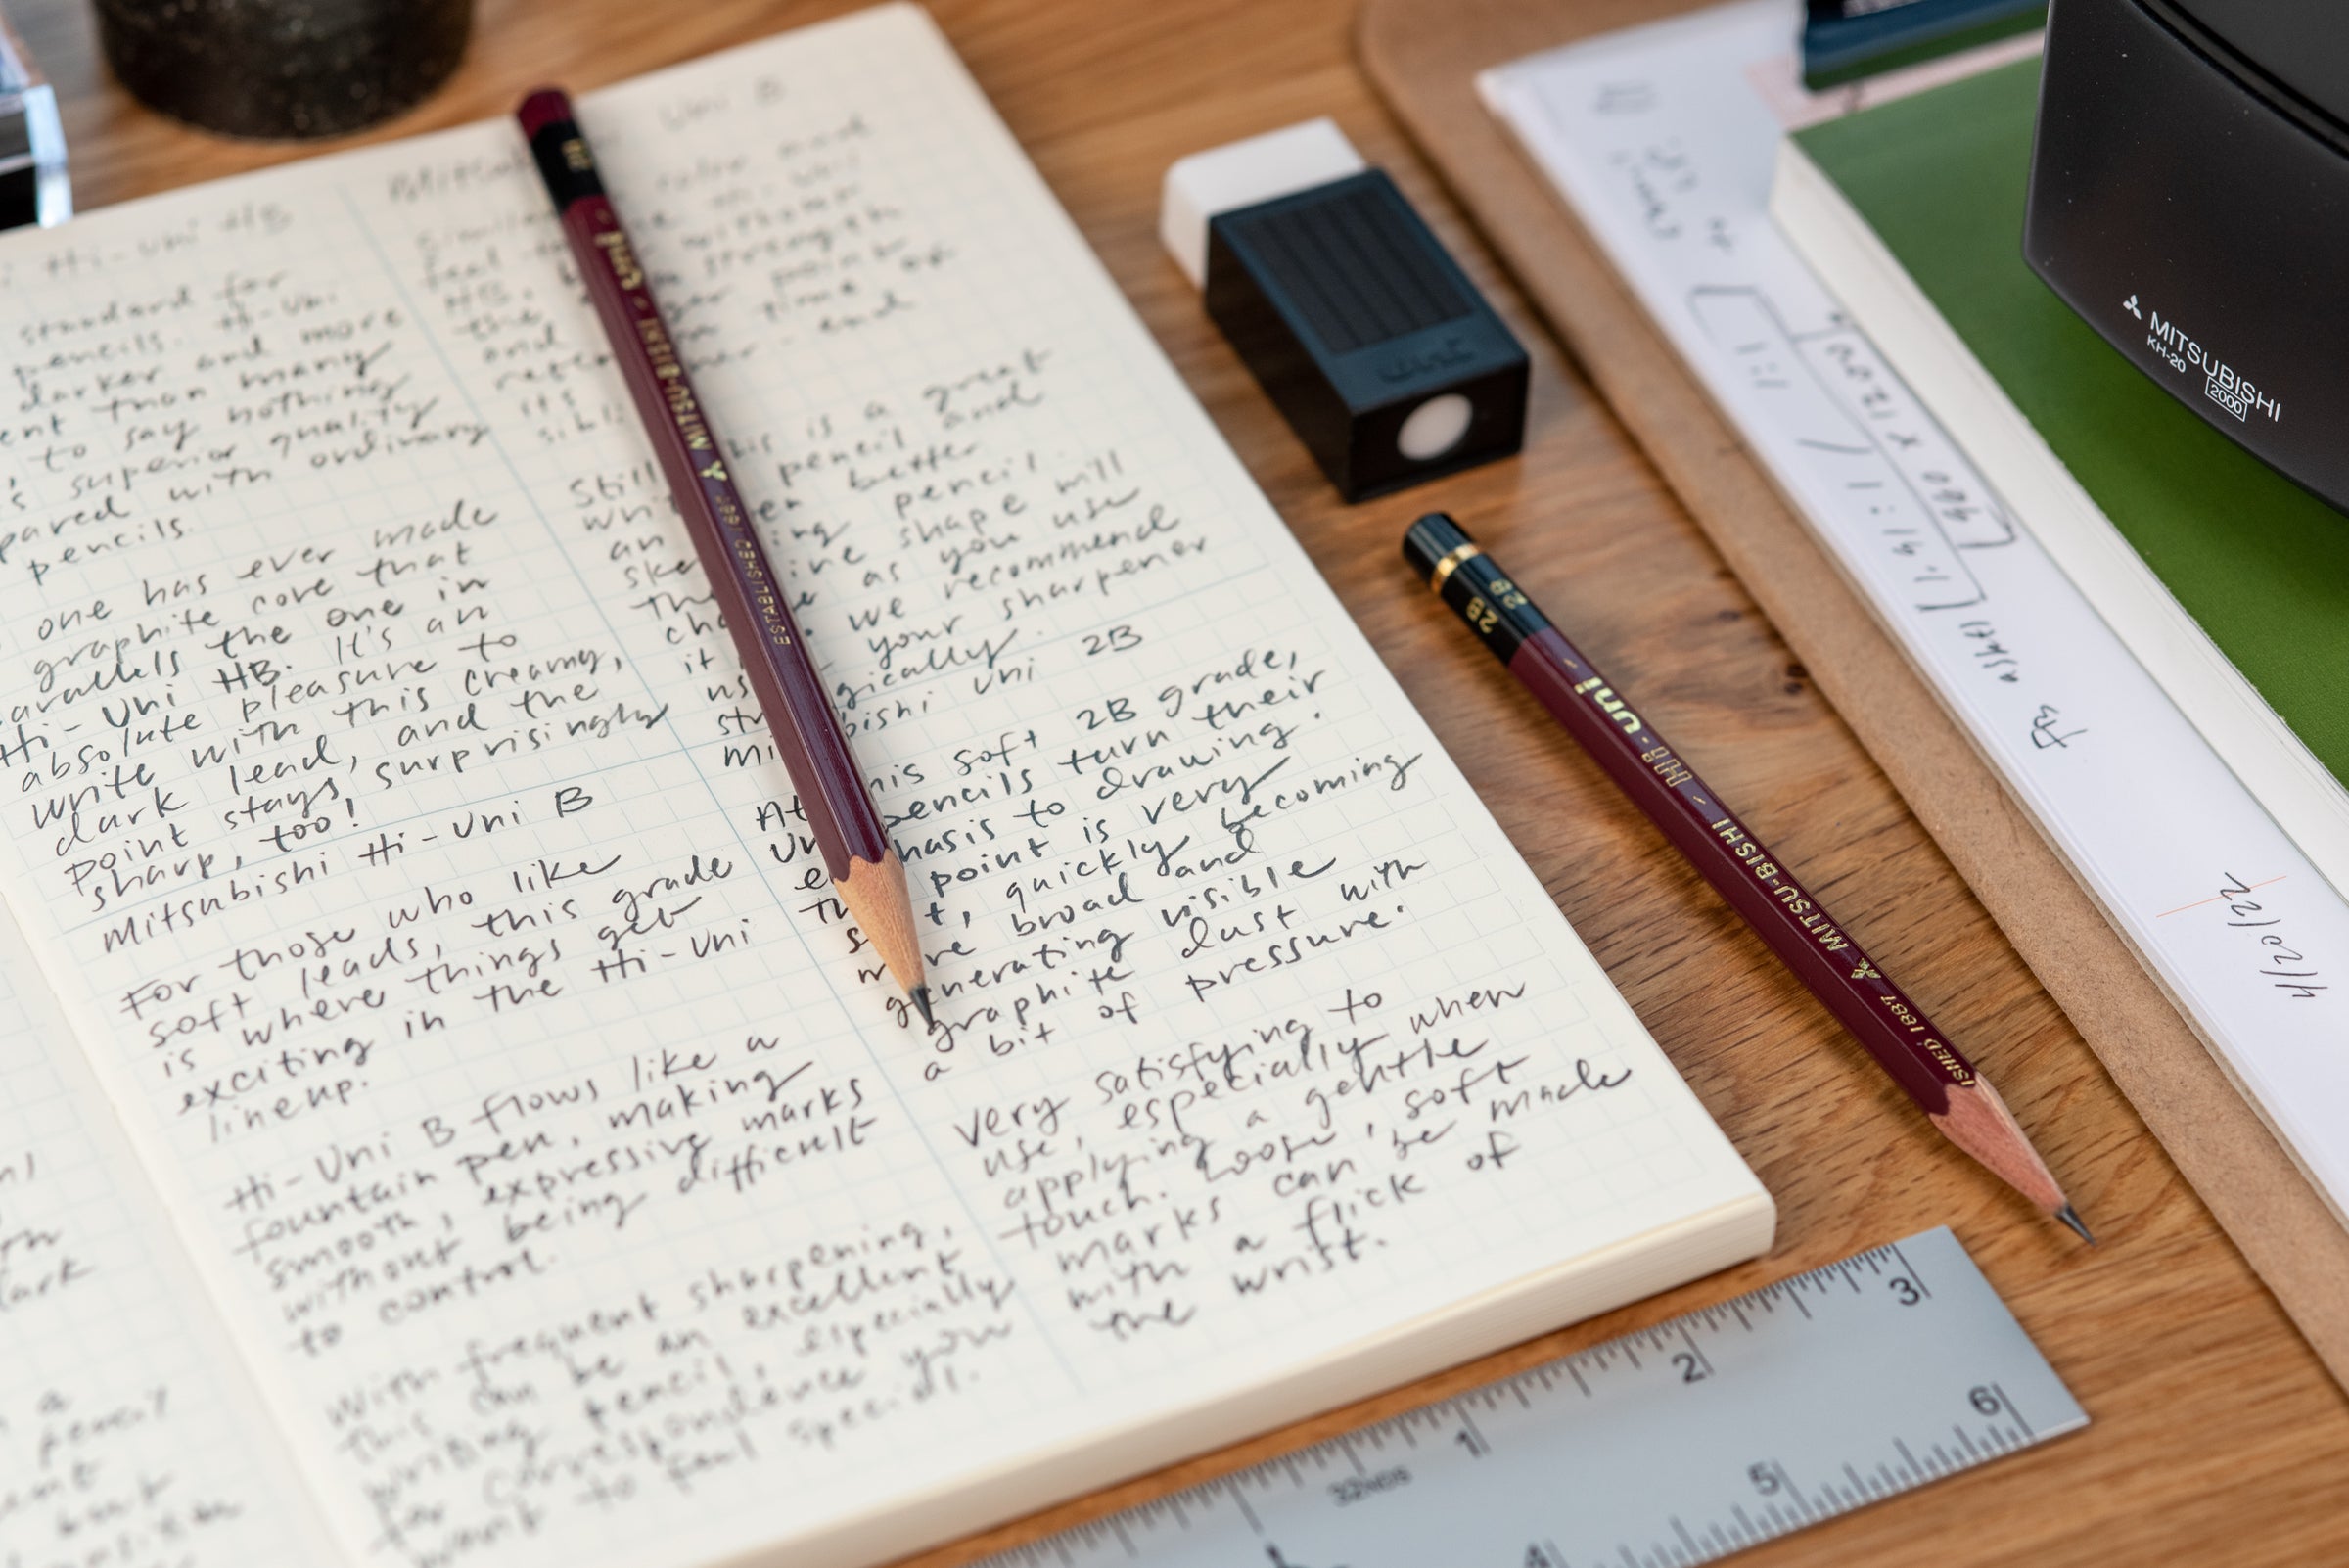 : Hi-Uni HB
standard for
pencils. Hi-Uni
darker and more
ent than many
, to say nothing
s superior quality
pared with ordinary
pencils.
one has ever made
graphite core that
arallels the one in
Hi-Uni HB. It's an
absolute pleasure to
write with this creamy,
dark lead, and the
point stays, surprisingly
sharp, too!
Mitsubishi Hi-Uni B
For those who like
soft leads, this grade
is where things get
exciting in the Hi-Uni
lineup.
Hi-Uni B flows like a
fountain pen, making
smooth, expressive marks
without being difficult
to control.
With frequent sharpening,
this can be an excellent
writing pencil, especially
for correspondence you
want to feel special.
Uni B
and
feel without
HB, strength
the point
and time of
end
its
Still this is a great
pencil and
an even better
pencil.
shape will
as you use
we recommend
your sharpener
Uni 2B
At this soft 2B grade,
Uni pencils turn their
to drawing.
point is very
quickly becoming
broad and
generating visible
graphite dust with
a bit of pressure.
Very satisfying to
use, especially when
applying a gentle
touch. Loose, soft
marks can be made
with a flick of
the wrist.
uni - MITSU-BISHI ESTABLISHED 1887
2B 2B - Hi-uni - MITSU-BISHI ISHED 1887
uni
1:1 / 1.91:1
960 x 1200
4/20/22
MITSUBISHI
KH-20
2000
1 2 3
32NDS
4 5 6